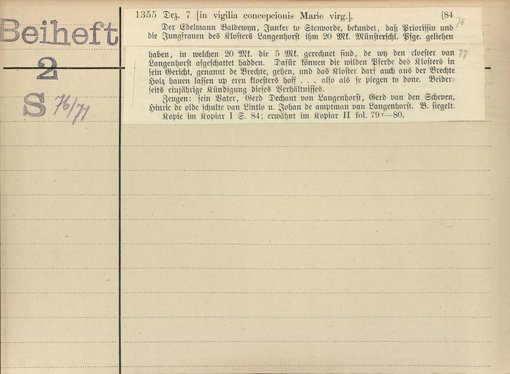 Beiheft
2
S 76/77
1355 Dez. 7 [in vigilia concepcionis Marie virg.]. [84
76
Der Edelmann Baldewyn, Junker to Stenvorde, bekundet, daß Priorissin und
die Jungfrauen des Klosters Langenhorst ihm 20 Mk. Münsterschl. Pfge. geliehen
haben, in welchen 20 Mk. die 5 Mk. gerechnet sind, de wy den cloester van 77
Langenhorst afgeschattet hadden. Dafür können die wilden Pferde des Klosters in
sein Gericht, genannt de Brechte, gehen, und das Kloster darf auch aus der Brechte
Holz hauen lassen up eren cloesters hoff . . . also als se plegen to done. Beider-
seits einjährige Kündigung dieses Verhältnisses.
Zeugen: sein Vater, Gerd Dechant von Langenhorst, Gerd van den Scheven,
Hinric de olde schulte van Lintlo u. Johan de amptman van Langenhorst. B. siegelt.
Kopie im Kopiar I S. 84; erwähnt im Kopiar II fol. 79v—80.